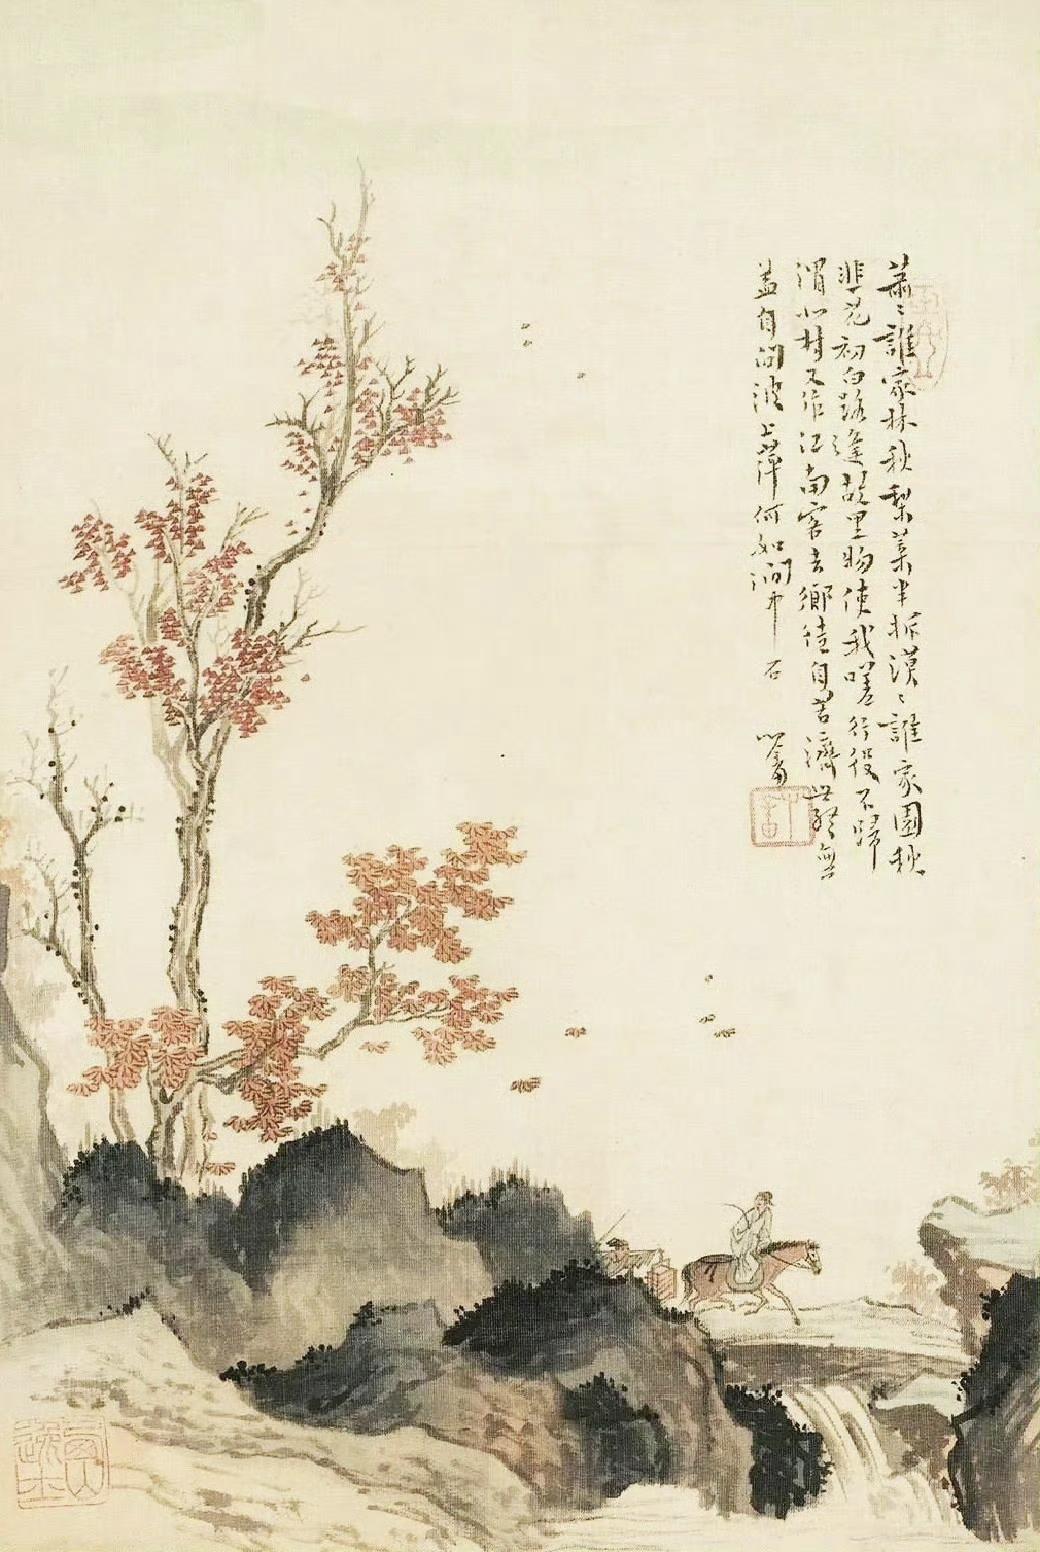 蕭〻誰家村秋梨葉半拆漠〻誰家園秋
韭花初白路逢故里物使我嗟行役不歸
渭北村又作江南客去鄉徒自苦濟世終無
益自問波上萍何如澗中石 心畬